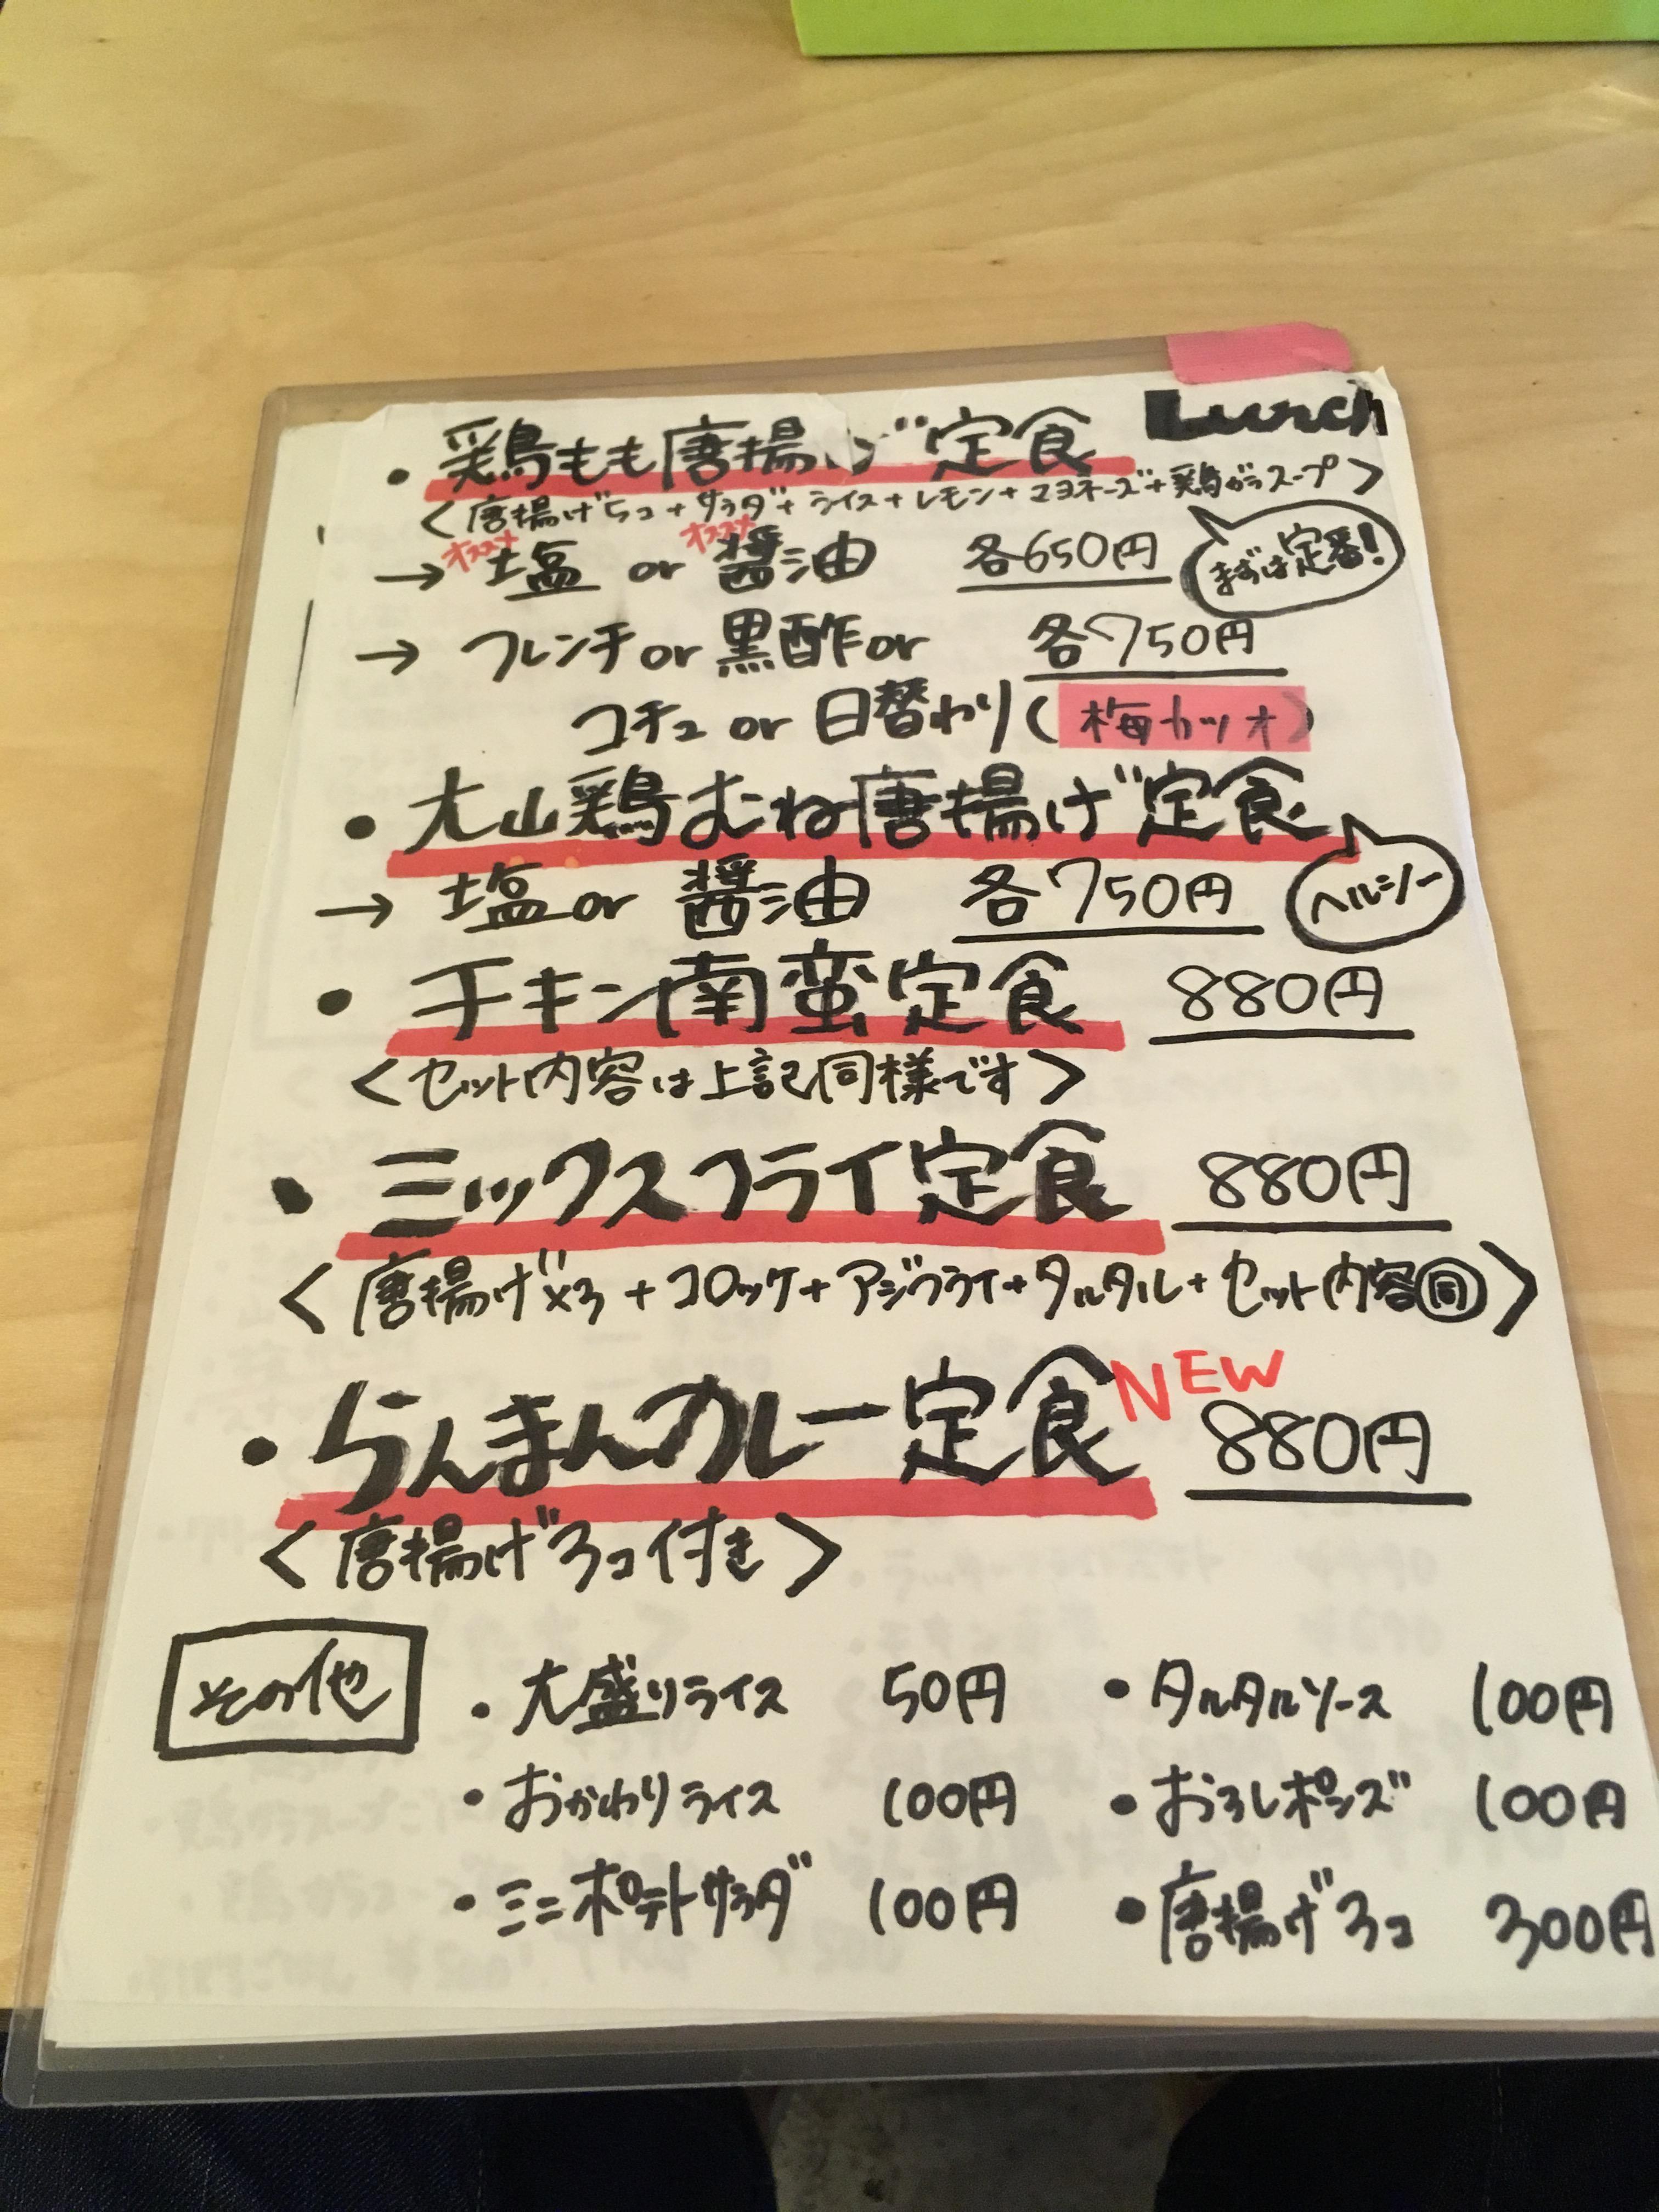 Lunch
・鶏もも唐揚げ定食
<唐揚げ5コ+サラダ+ライス+レモン+マヨネーズ+鶏がらスープ>
オススメ オススメ
→塩 or 醤油 各650円
まずは定番!
→フレンチor黒酢or 各750円
コチュ or 日替わり(梅カツオ)
・大山鶏むね唐揚げ定食
→塩or 醤油 各750円 ヘルシー
・チキン南蛮定食 880円
<セット内容は上記同様です>
・ミックスフライ定食 880円
<唐揚げ×3+コロッケ+アジフライ+タルタル+セット内容同>
・らんまんカレー定食 NEW 880円
<唐揚げ3コ付き>
その他
・大盛りライス 50円 ・タルタルソース 100円
・おかわりライス 100円 ・おろしポンズ 100円
・ミニポテトサラダ 100円 ・唐揚げ3コ 300円